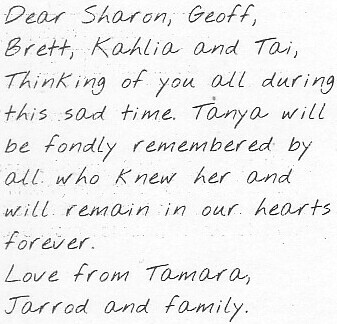 Dear Sharon, Geoff,
Brett, Kahlia and Tai,
Thinking of you all during
this sad time. Tanya will
be fondly remembered by
all who knew her and
will remain in our hearts
forever.
Love from Tamara,
Jarrod and family.